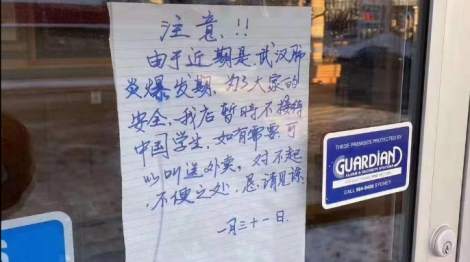 注意.!!
由于近期是.武汉肺
炎爆发期.为了大家的
安全.我店暂时不接待
中国学生.如有需要可
以叫送外卖,对不起
不便之处.恳请见谅.
一月三十一日.
THESE PREMISES PROTECTED BY
GUARDIAN
ALARM & SECURITY SYSTEMS
SYDNEY